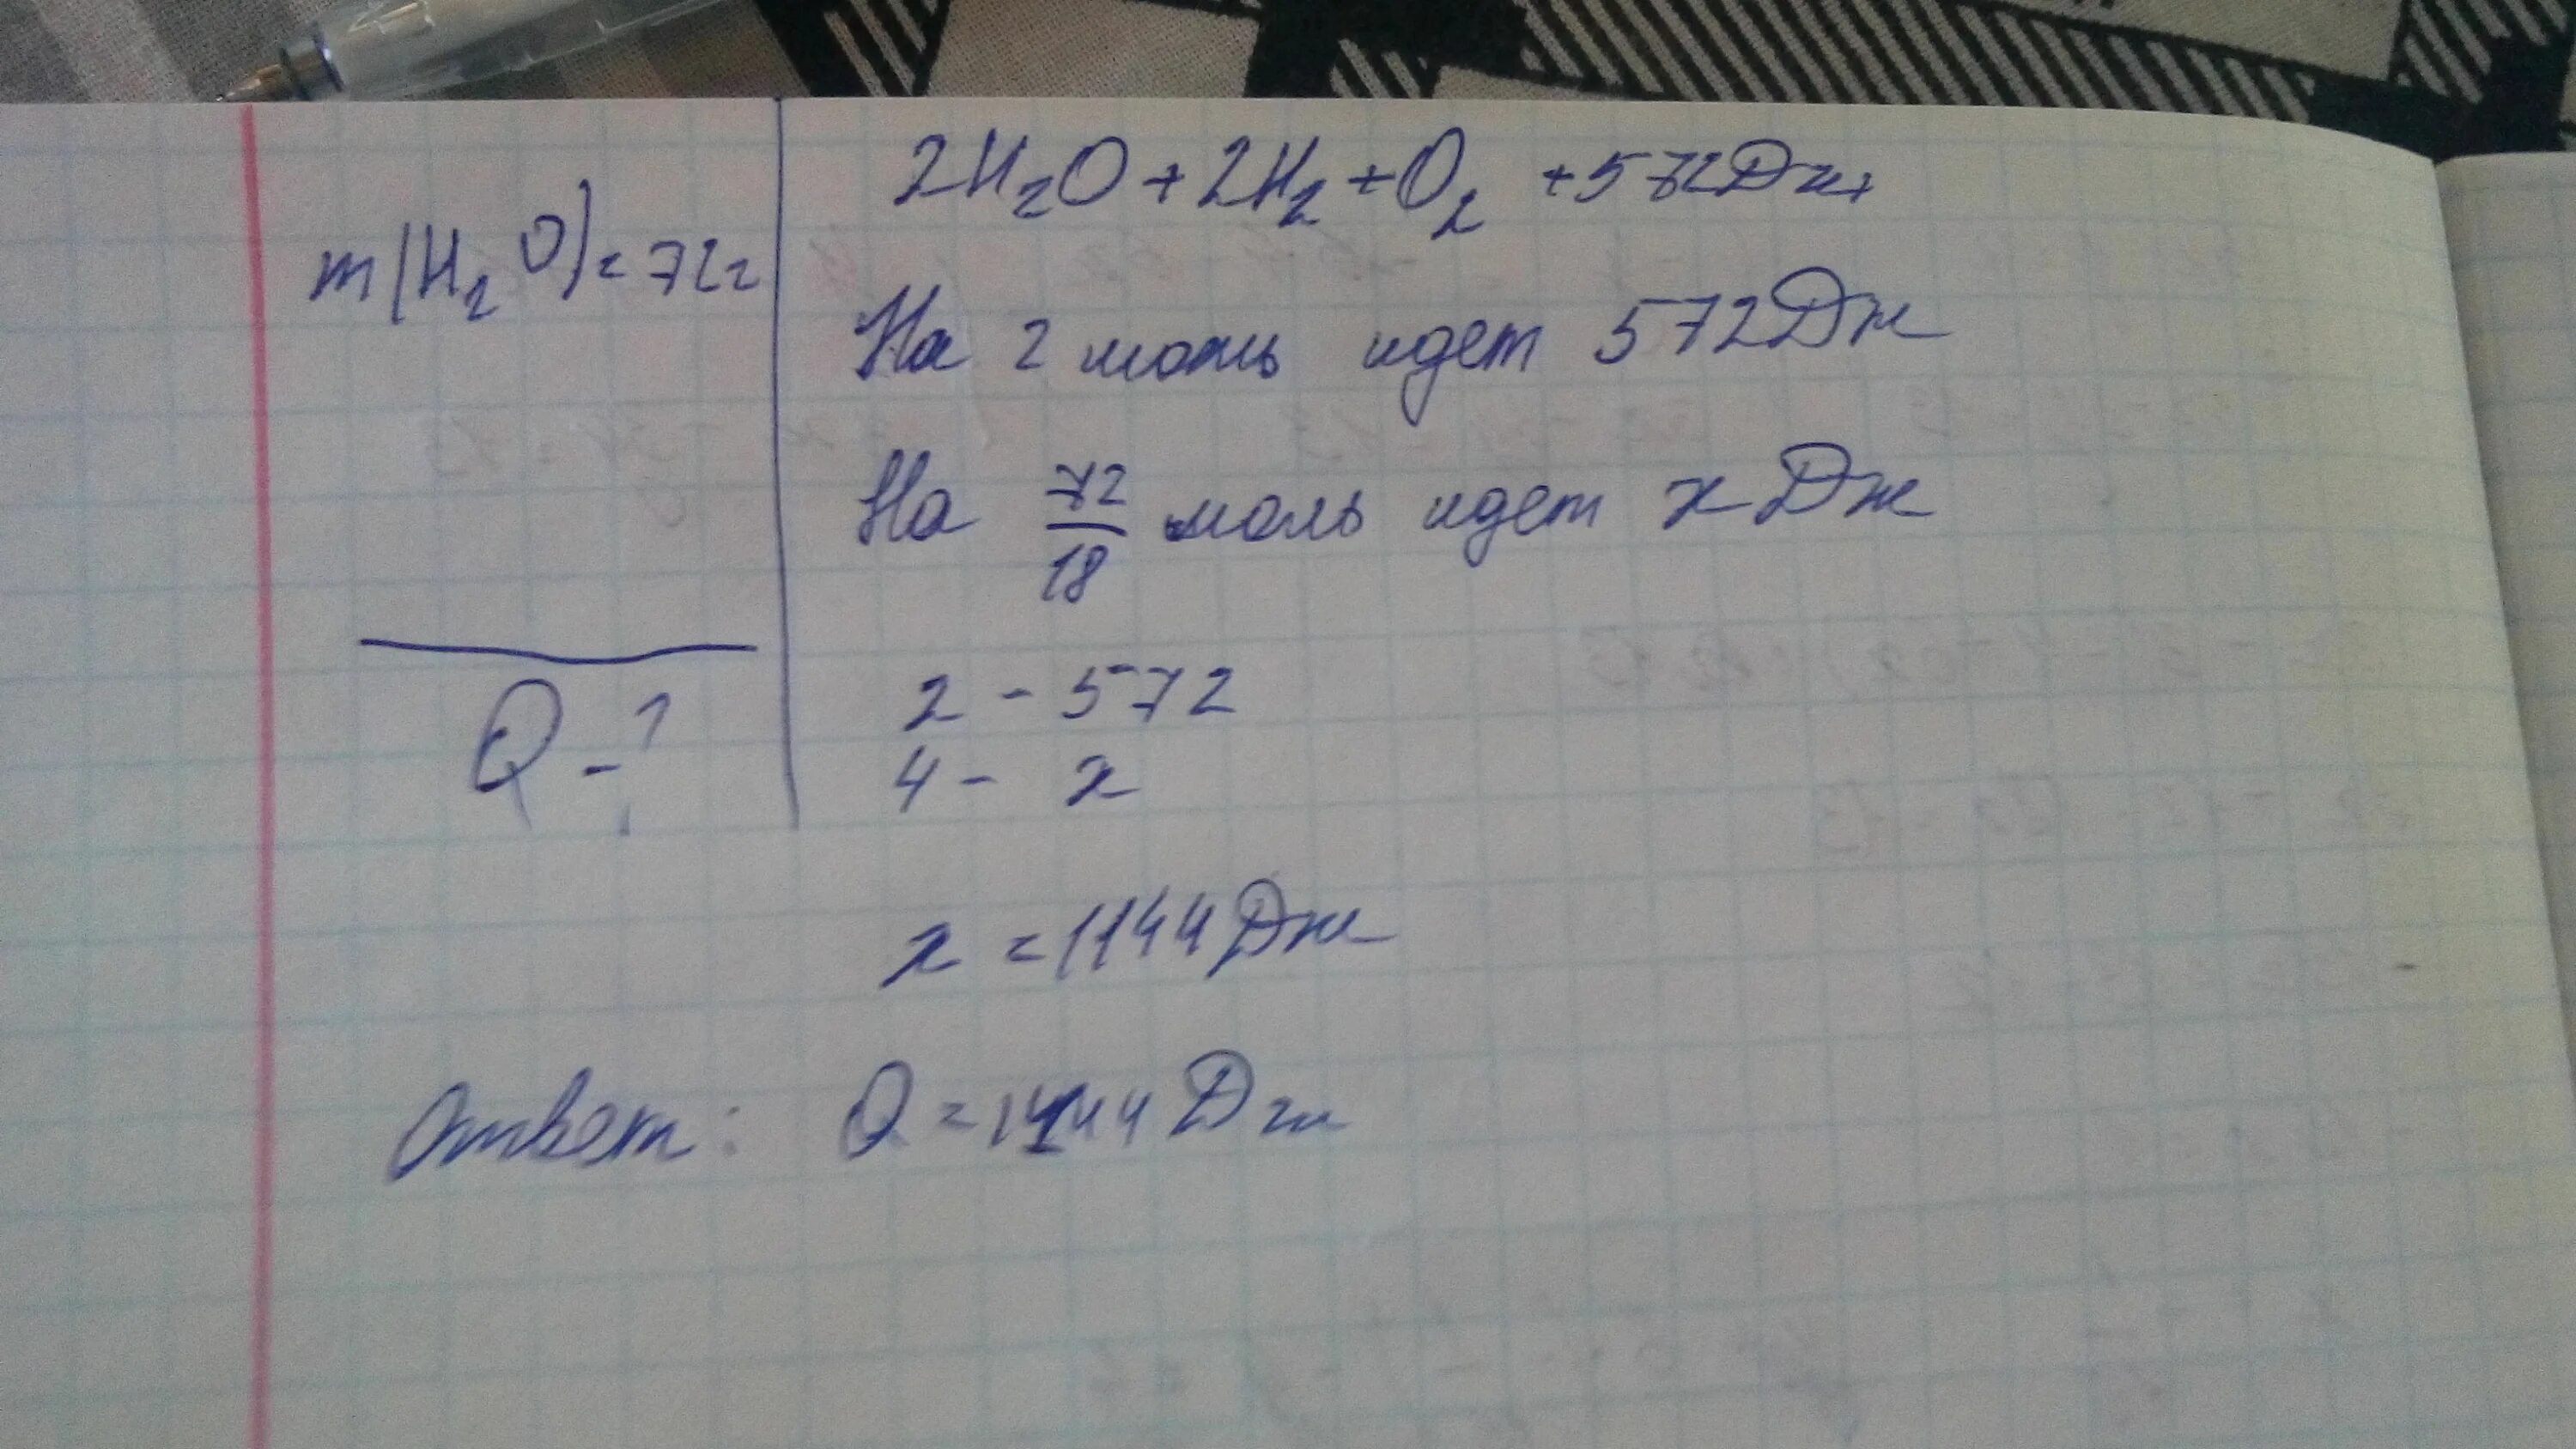 m(H₂O)=72г
Q-?
2H₂O+2H₂+O₂ +572Дж
На 2 моль идет 572Дж
На 72/18 моль идет x Дж
2 - 572
4 - x
x =1144Дж
Ответ: Q =1144 Дж